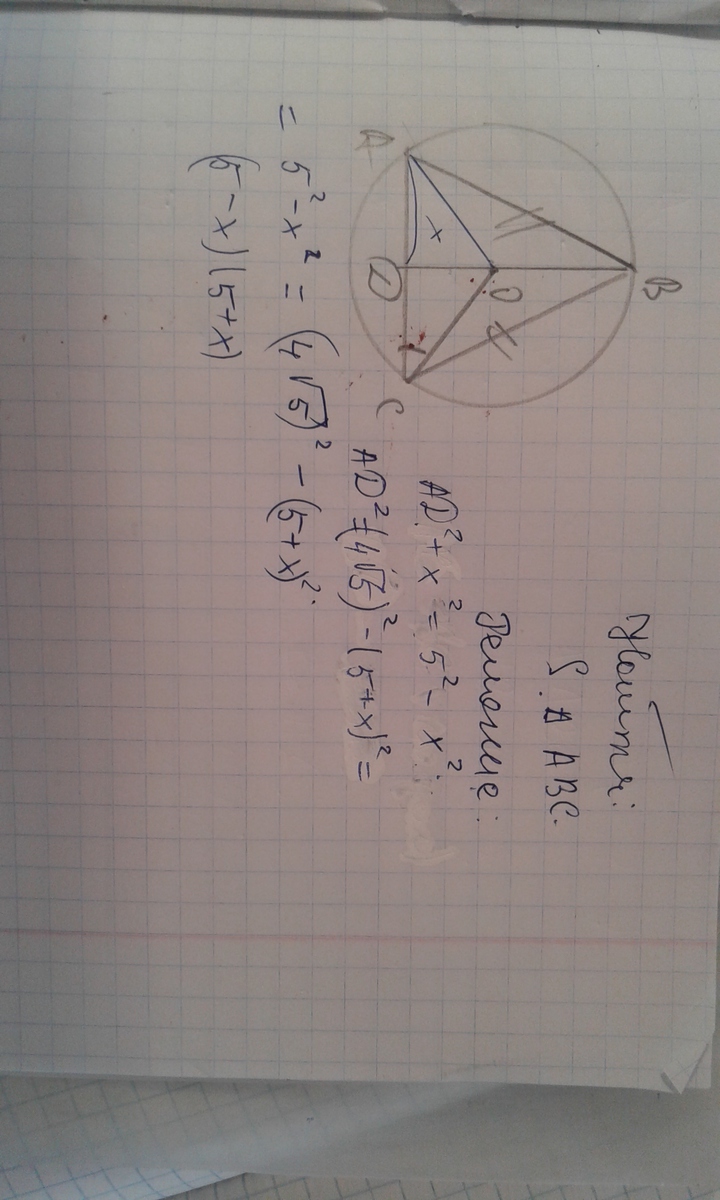 Найти:
S △ ABC.
Решение:
AD² + x² = 5² - x²
AD² = (4√5)² - (5+x)² =
= 5² - x² = (4√5)² - (5+x)².
(5-x)(5+x)
B
O
x
A
D
C